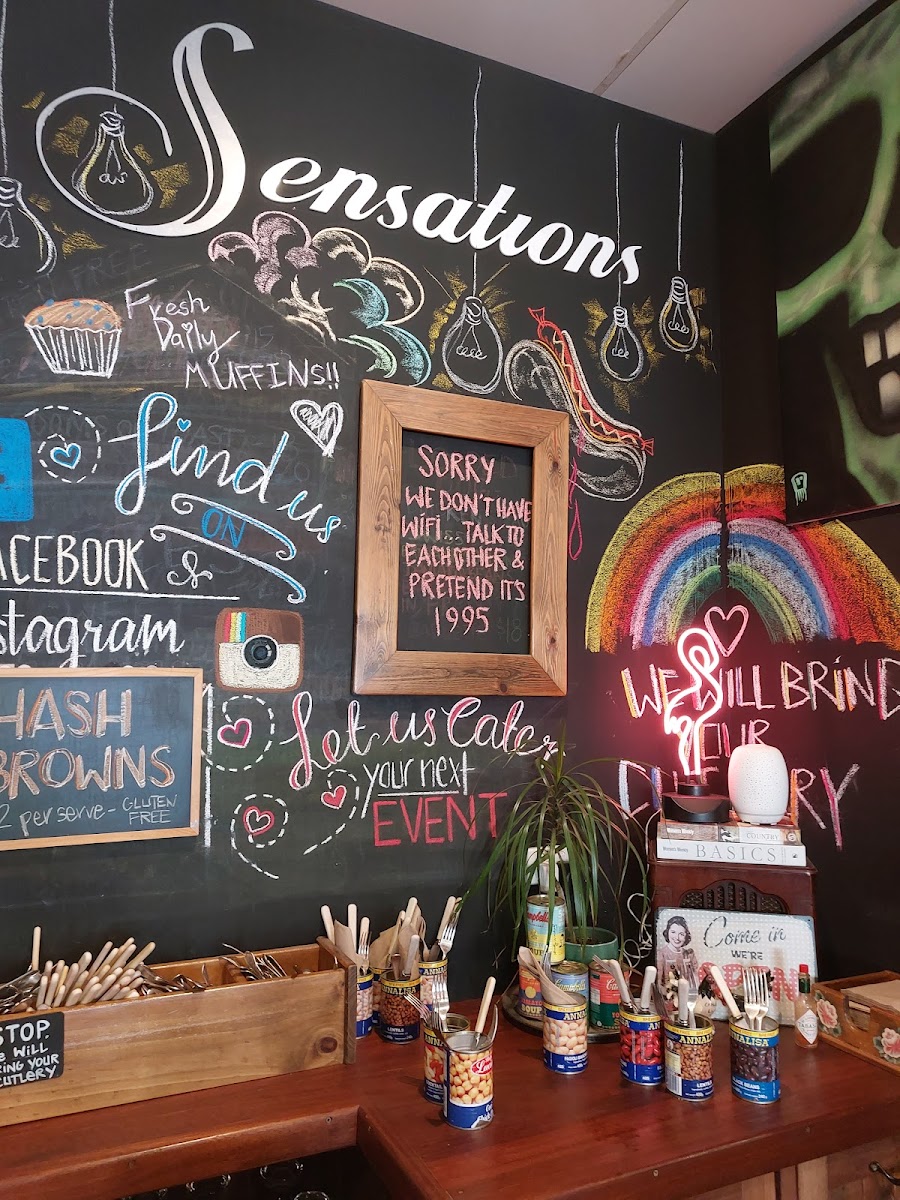 Sensations
Fresh
Daily
MUFFINS!!
find
us
ON
ACEBOOK &
stagram
SORRY
WE DON'T HAVE
WIFI... TALK TO
EACH OTHER &
PRETEND IT'S
1995
HASH
BROWNS
2 per serve - GLUTEN
FREE
Let us Cater
your next
EVENT
WE WILL BRING
OUR
COUNTRY
BASICS
Come in
WE'RE
OPEN
STOP
WE WILL
RING YOUR
CUTLERY
Campbell's
Campbell's
SOUP
ANNALISA
LENTILS
ANNALISA
ANNALISA
ANNALISA
LENTILS
ANNALISA
BLACK BEANS
TABASCO